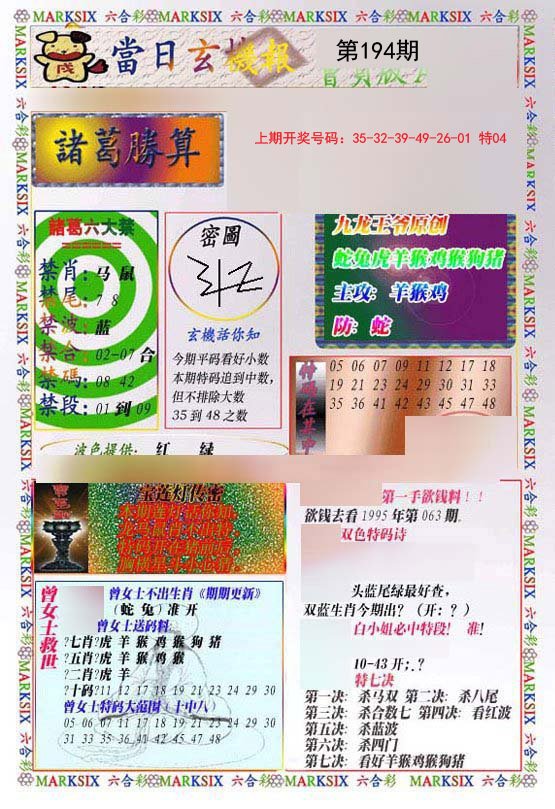 MARKSIX 六合彩 MARKSIX 六合彩 MARKSIX 六合彩 MARKSIX 六合彩
當日玄機報
第194期
上期开奖号码：35-32-39-49-26-01 特04
諸葛勝算
諸葛六大禁
======
禁肖：马 鼠
禁尾：7 8
禁波：蓝
禁合：02-07合
禁碼：08 42
禁段：01到09
密圖
玄機話你知
今期平码看好小数
本期特码追到中数，
但不排除大数
35 到 48 之数
九龙王爷原创
蛇兔虎羊猴鸡猴狗猪
主攻：羊猴鸡
防：蛇
特码在其中
05 06 07 09 11 12 17 18
19 21 23 24 29 30 31 33
35 36 41 42 43 45 47 48
波色提供：红 绿
宝莲灯传密
第一手欲钱料！！
欲钱去看 1995 年第 063 期。
双色特码诗
头蓝尾绿最好查，
双蓝生肖今期出？（开：？）
白小姐必中特段！ 准！
10-43 开；.？
特七决
第一决：杀马双 第二决：杀八尾
第三决：杀合数七 第四决：看红波
第五决：杀蓝波
第六决：杀四门
第七决：看好羊猴鸡猴狗猪
曾女士救世
曾女士不出生肖《期期更新》
（蛇 兔）准 开
曾女士送码料
?七肖?虎 羊 猴 鸡 猴 狗 猪
?五肖?虎 羊 猴 鸡 猴
?二肖?虎 羊
?十码?11 12 17 18 19 21 23 24 29 30
曾女士特码大范围（十中八）
05 06 07 09 11 17 18 19 21 23 24 29 30
31 33 35 36 41 42 45 47 48
MARKSIX 六合彩 MARKSIX 六合彩 MARKSIX 六合彩 MARKSIX 六合彩